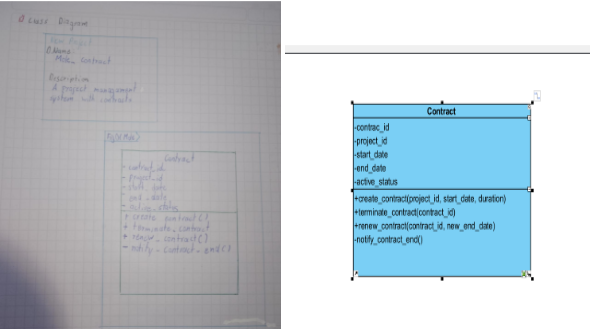 Class Diagram
New Project
Name
Description
A project management
system with contracts
Contract
- contract_id
- project_id
- start_date
- end_date
- active_status
+ create_contract()
+ terminate_contract
+ renew_contract()
- notify_contract_end()
Contract
-contrac_id
-project_id
-start_date
-end_date
-active_status
+create_contract(project_id, start_date, duration)
+terminate_contract(contract_id)
+renew_contract(contract_id, new_end_date)
-notify_contract_end()